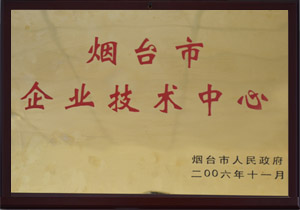 烟台市
企业技术中心
烟台市人民政府
二〇〇六年十一月